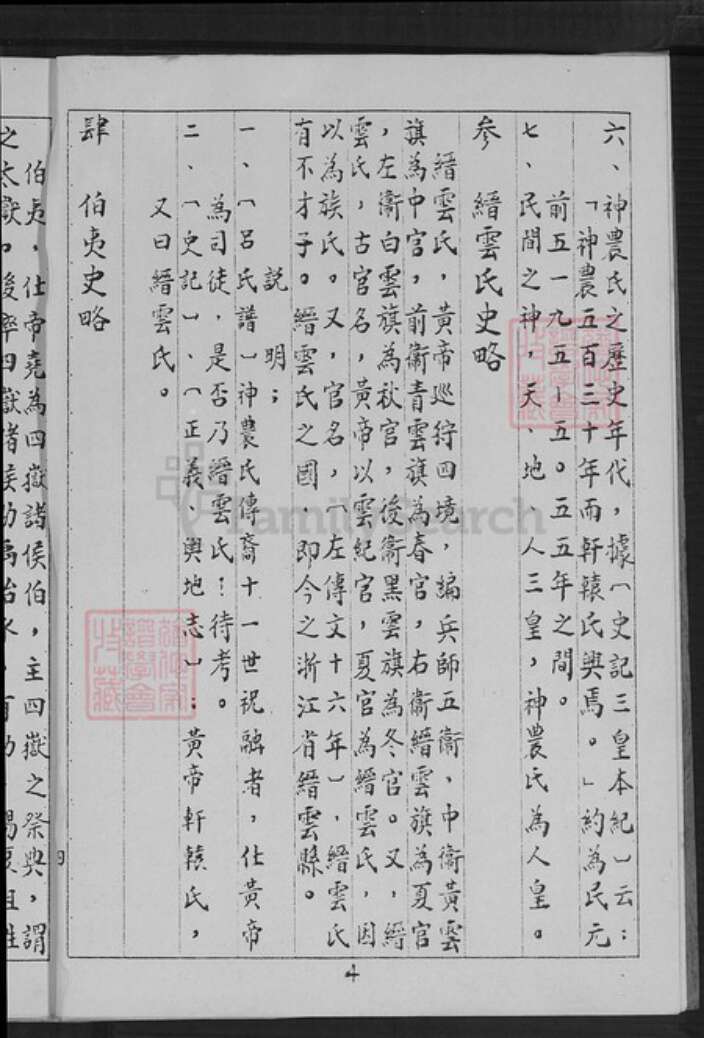 六、神農氏之歷史年代，據︹史記三皇本紀︺云：
「神農五百三十年而軒轅氏興焉。」約為民元
前五一九五—五。五五年之間。
七、民間之神，天、地、人三皇，神農氏為人皇。
參　縉雲氏史略
縉雲氏，黃帝巡狩四境，編兵師五衞、中衞黃雲
旗為中官，前衞青雲旗為春官，右衞縉雲旗為夏官
，左衞白雲旗為秋官，後衞黑雲旗為冬官。又，縉
雲氏，古官名，黃帝以雲紀官，夏官為縉雲氏，因
以為族氏。又，官名，︹左傳文十六年︺，縉雲氏
有不才子。縉雲氏之國，即今之浙江省縉雲縣。
說　明；
一、︹呂氏譜︺神農氏傳裔十一世祝融者，仕黃帝
為司徒，是否乃縉雲氏！待考。
二、︹史記︺、︹正義、輿地志︺：黃帝軒轅氏，
又曰縉雲氏。
肆　伯夷史略
伯夷，仕帝堯為四嶽諸侯伯，主四嶽之祭典，謂
之太嶽。後率四嶽諸侯助禹治水，有功
四
4
FamilySearch